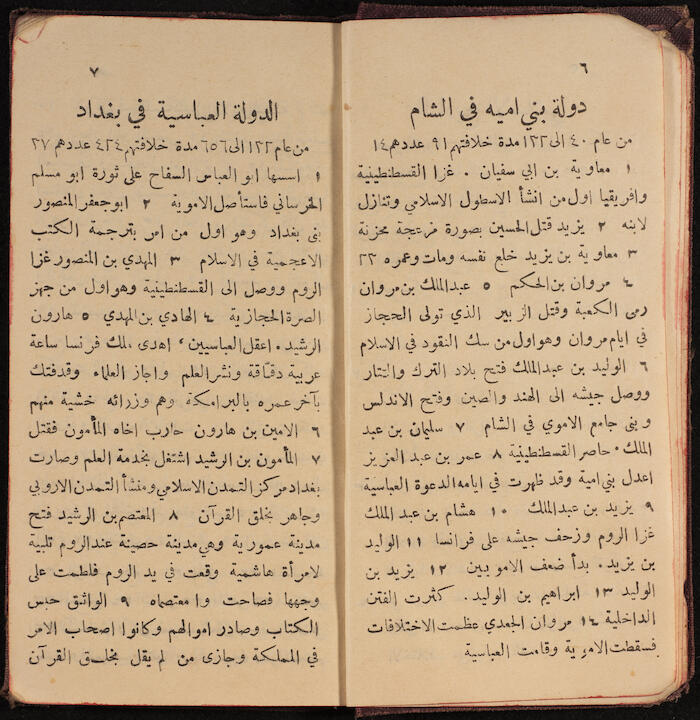 ٦
دولة بني اميه في الشام
من عام ٤٠ الى ١٢٢ مدة خلافتهم ٩١ عددهم ١٤
١ معاوية بن ابي سفيان . غزا القسطنطينية
وافريقيا اول من انشأ الاسطول الاسلامي وتنازل
لابنه ٢ يزيد قتل الحسين بصورة مزعجة محزنة
٣ معاوية بن يزيد خلع نفسه ومات وعمره ٢٢
٤ مروان بن الحكم ٥ عبد الملك بن مروان
رمى الكعبة وقتل الزبير الذي تولى الحجاز
في ايام مروان وهو اول من سك النقود في الاسلام
٦ الوليد بن عبد الملك فتح بلاد الترك والتتار
ووصل جيشه الى الهند والصين وفتح الاندلس
وبنى جامع الاموي في الشام ٧ سليمان بن عبد
الملك . حاصر القسطنطينية ٨ عمر بن عبد العزيز
اعدل بني امية وقد ظهرت في ايامه الدعوة العباسية
٩ يزيد بن عبد الملك ١٠ هشام بن عبد الملك
غزا الروم وزحف جيشه على فرانسا ١١ الوليد
بن يزيد . بدأ ضعف الامويين ١٢ يزيد بن
الوليد ١٣ ابراهيم بن الوليد . كثرت الفتن
الداخلية ١٤ مروان الجعدي عظمت الاختلافات
فسقطت الاموية وقامت العباسية
٧
الدولة العباسية في بغداد
من عام ١٢٢ الى ٦٥٦ مدة خلافتهم ٤٢٤ عددهم ٢٧
١ اسسها ابو العباس السفاح على ثورة ابو مسلم
الخرساني فاستأصل الاموية ٢ ابو جعفر المنصور
بنى بغداد وهو اول من امر بترجمة الكتب
الاعجمية في الاسلام ٣ المهدي بن المنصور غزا
الروم ووصل الى القسطنطينية وهو اول من جهز
الصرة الحجازية ٤ الهادي بن المهدي ٥ هارون
الرشيد . اعقل العباسيين ، اهدى ملك فرنسا ساعة
عربية دقاقة ونشر العلم واجاز العلماء وقدفتك
بآخر عمره بالبرامكة وهم وزرائه خشية منهم
٦ الامين بن هارون حارب اخاه المأمون فقتل
٧ المأمون بن الرشيد اشتغل بخدمة العلم وصارت
بغداد مركز التمدن الاسلامي ومنشأ التمدن الاروبي
وجاهر بخلق القرآن ٨ المعتصم بن الرشيد فتح
مدينة عمورية وهي مدينة حصينة عند الروم تلبية
لامرأة هاشمية وقعت في يد الروم فلطمت على
وجهها فصاحت وا معتصماه ٩ الواثق حبس
الكتاب وصادر اموالهم وكانوا اصحاب الامر
في المملكة وجازى من لم يقل بخلق القرآن